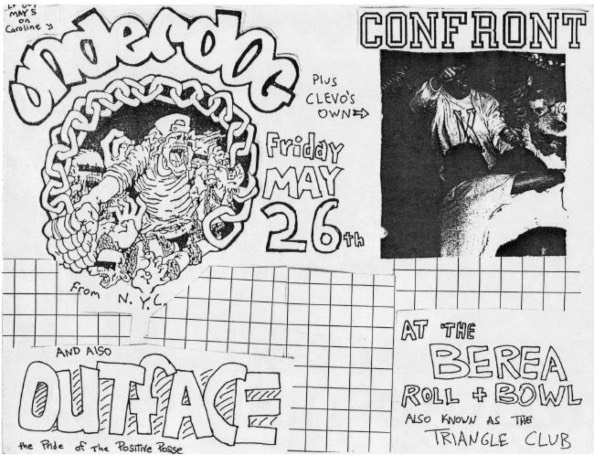 MAY 5
on
Caroline St
underdog
PLUS
CLEVO'S
OWN
CONFRONT
Friday
MAY
26th
From N.Y.C.
AND ALSO
OUTfACE
the Pride of the Positive Posse
AT THE
BEREA
ROLL + BOWL
ALSO KNOWN AS THE
TRIANGLE CLUB